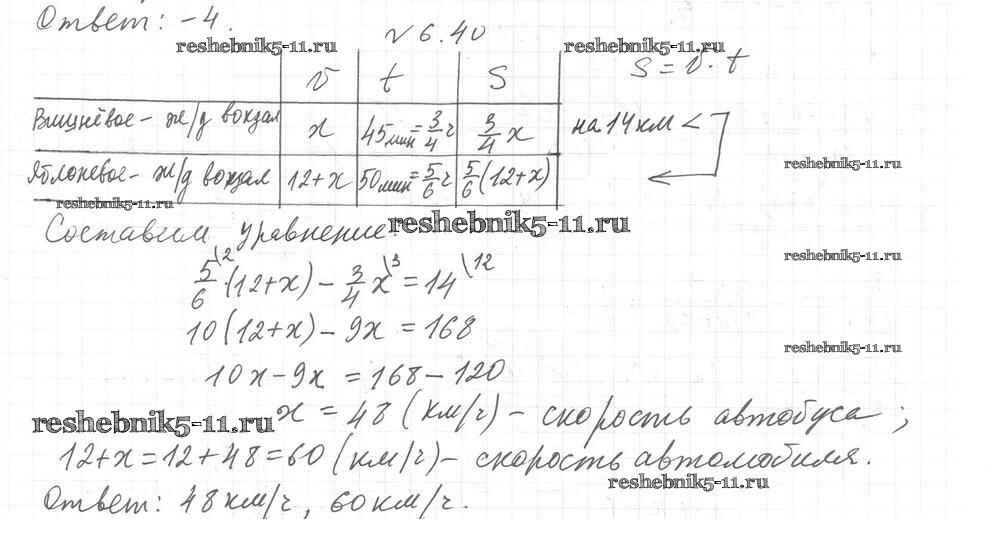 Ответ: -4.
№ 6.40
reshebnik5-11.ru reshebnik5-11.ru
v t S S = v · t
Вишнёвое - ж/д вокзал x 45 мин = 3/4 ч 3/4 x на 14 км <
reshebnik5-11.ru
Яблоневое - ж/д вокзал 12+x 50 мин = 5/6 ч 5/6 (12+x)
reshebnik5-11.ru
Составим уравнение: reshebnik5-11.ru
5/6\2 · (12+x) - 3/4 x\3 = 14\12
reshebnik5-11.ru
10(12+x) - 9x = 168
reshebnik5-11.ru
10x - 9x = 168 - 120
reshebnik5-11.ru x = 48 (км/ч) - скорость автобуса;
12+x = 12+48 = 60 (км/ч) - скорость автомобиля.
reshebnik5-11.ru
Ответ: 48 км/ч, 60 км/ч.